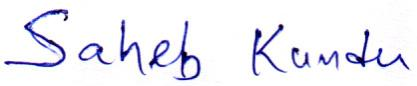 Saheb Kundu